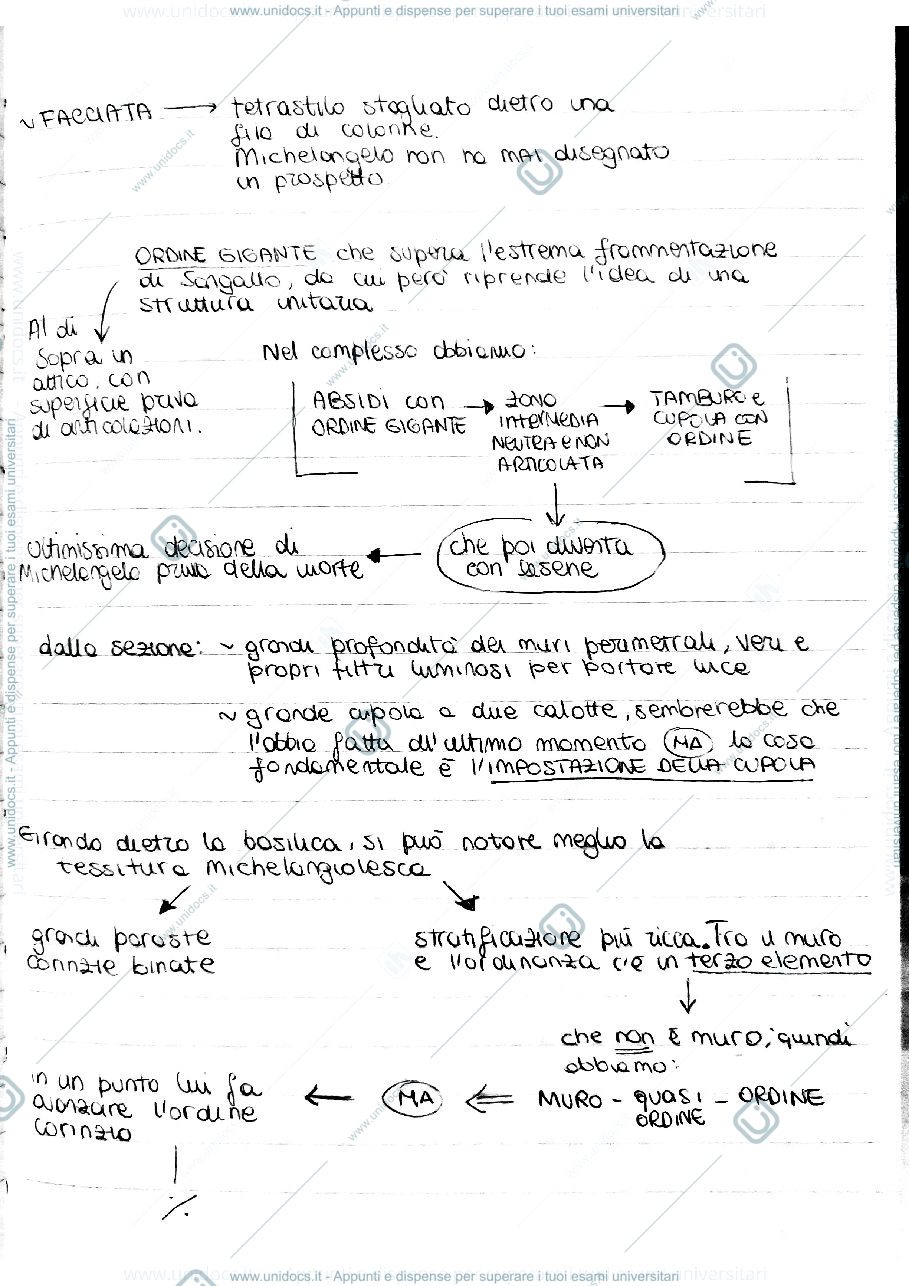 www.unidocs.it - Appunti e dispense per superare i tuoi esami universitari
~ FACCIATA → tetrastilo stagliato dietro una
fila di colonne.
Michelangelo non ha mai disegnato
un prospetto
ORDINE GIGANTE che supera l'estrema frammentazione
di Sangallo, da cui però riprende l'idea di una
struttura unitaria
Al di
sopra un
attico, con
superficie priva
di articolazioni.
Nel complesso abbiamo:
ABSIDI con
ORDINE GIGANTE
→ ZONA
INTERMEDIA
NEUTRA e NON
ARTICOLATA
→ TAMBURO e
CUPOLA CON
ORDINE
che poi diventa
con lesene
Ultimissima decisione di
Michelangelo prima della morte
dalla sezione: ~ grandi profondità dei muri perimetrali, veri e
propri filtri luminosi per portare luce
~ grande cupola a due calotte, sembrerebbe che
l'abbia fatta all'ultimo momento MA la cosa
fondamentale è l'IMPOSTAZIONE DELLA CUPOLA
Girando dietro la basilica, si può notare meglio la
tessitura michelangiolesca
grandi paraste
corinzie binate
stratificazione più ricca. Tra il muro
e l'ordinanza c'è un terzo elemento
che non è muro, quindi
abbiamo:
MURO - QUASI - ORDINE
ORDINE
MA
in un punto lui fa
avanzare l'ordine
corinzio
./.
www.unidocs.it - Appunti e dispense per superare i tuoi esami universitari